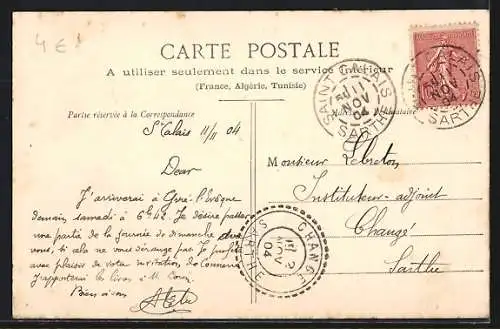 4 €
CARTE POSTALE
A utiliser seulement dans le service intérieur
(France, Algérie, Tunisie)
Partie réservée à la Correspondance
St Calais 11/11 04
Dear
J'arriverai à Yvré-l'Evêque
demain samedi à 6h42. Je désire passer
une partie de la journée de dimanche avec
vous, si cela ne vous dérange pas. Je profite
avec plaisir de votre invitation,
J'apporterai les livres à M.
Bien à vous
Monsieur Lebreton
Instituteur-adjoint
Changé
Sarthe
SAINT-CALAIS
11
NOV
04
SARTHE
CALAIS
NOV
04
SARTHE
CHANGÉ
12
NOV
04
SARTHE